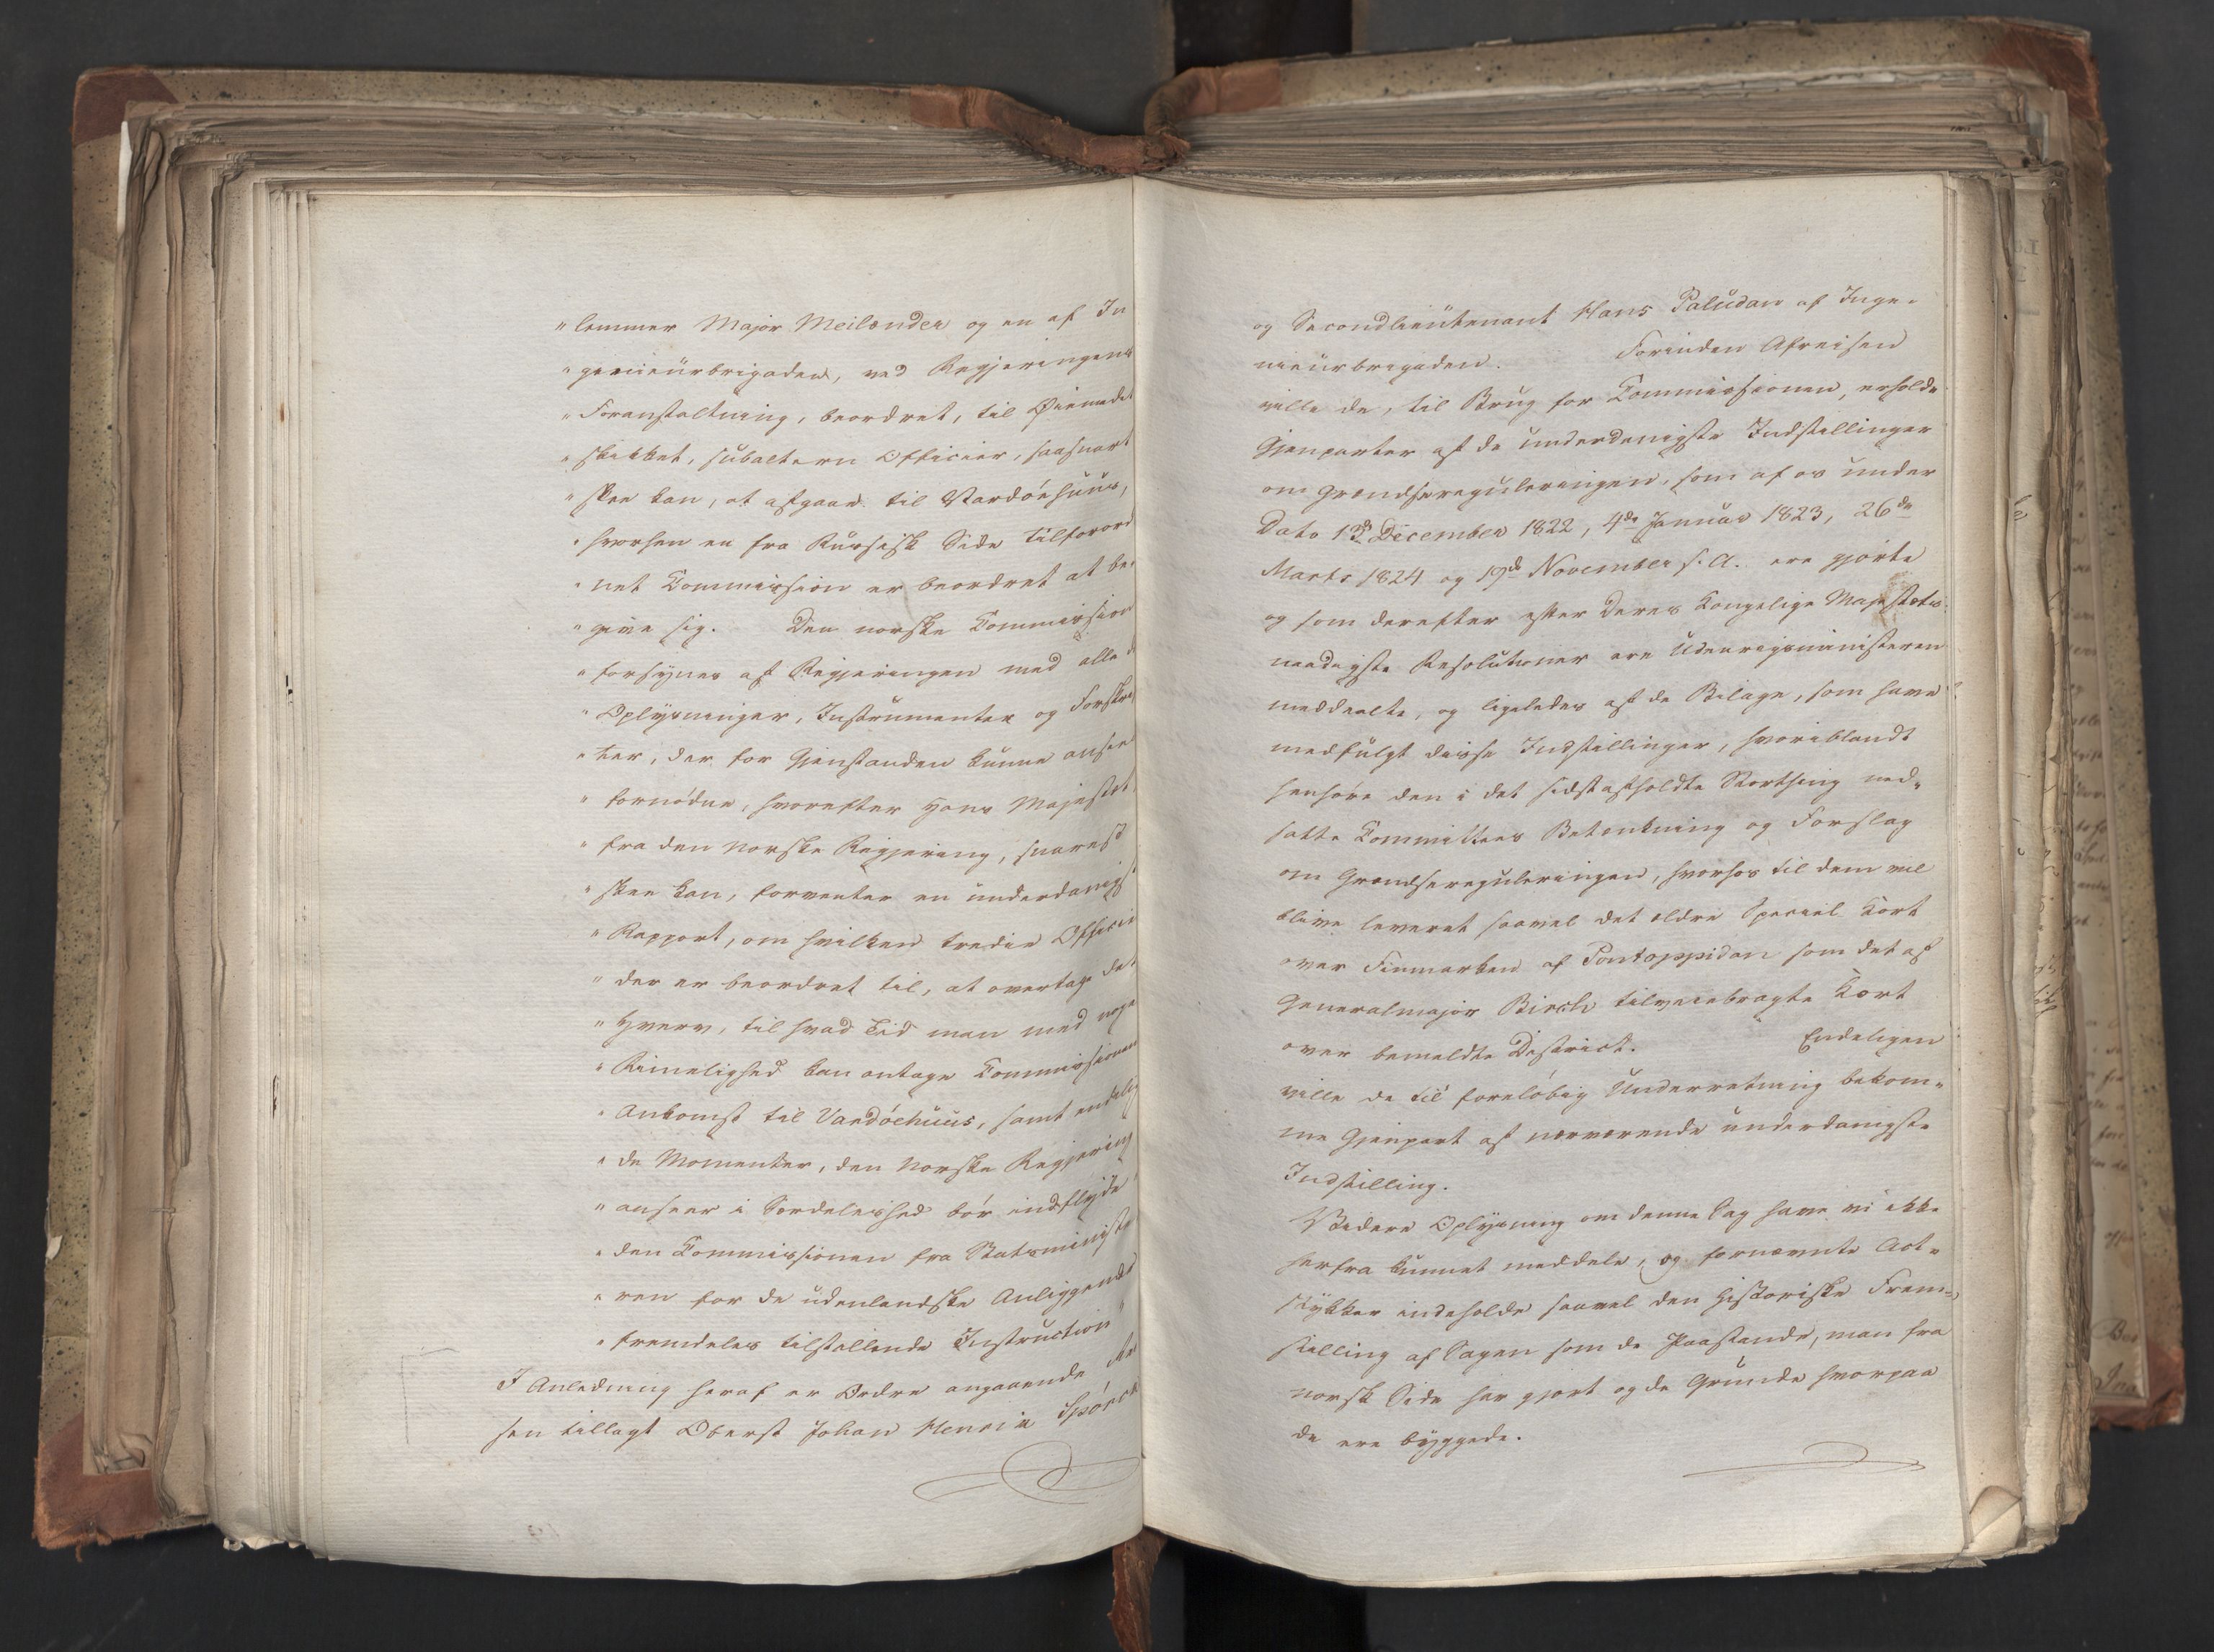 "lemmer Major Meilænder og en af In
"genieürbrigaden, ved Regjeringens
"Foranstaltning, beordret, til Øiemedet
"skikket, subaltern Officier, saasnart
"skee kan, at afgaae til Vardöehuus,
"hvorhen en fra Russisk Side tilforord
"net Commission er beordret at be-
"give sig. Den norske Commission
"forsynes af Regjeringen med alle d
"Oplysninger, Instrumenter og Forskrif
"ter, der for Gjenstanden kunne ansees
"fornødne, hvorefter Hans Majestæt,
"fra den Norske Regjering, snarest
"skee kan, forventer en underdanigst
"Rapport, om hvilken tredie Officier
"der er beordret til, at overtage det
"Hverv, til hvad Tid man med noge
"Rimelighed kan antage Commissionens
"Ankomst til Vardöehuus, samt endelig
"de Momenter, den Norske Regjering
"anseer i Særdeleshed bør indflyde i
"den Commissionen fra Statsministe
"ren for de udenlandske Anliggender
"fremdeles tilstillende Instruction"
I Anledning heraf er Ordre angaaende Rei
sen tillagt Oberst Johan Henrik Spörck
og Secondlieutenant Hans Paludan af Inge-
nieurbrigaden. Forinden Afreisen
ville de, til Brug for Commissionen, erholde
Gjenparter af de underdanigste Indstillinger
om Grændsereguleringen, som af os under
Dato 13de December 1822, 4de Januar 1823, 26de
Marts 1824 og 19de November s. A. ere gjorte
og som derefter efter Deres Kongelige Majestæts
naadigste Resolutioner ere Udenrigsministeren
meddeelte, og ligeledes af de Bilage, som have
medfulgt disse Indstillinger, hvoriblandt
henhøre den i det sidstafholdte Storthing ned-
satte Committees Betænkning og Forslag
om Grændsereguleringen, hvorhos til dem vil
blive leveret saavel det ældre Special Kort
over Finmarken af Pontoppidan som det af
Generalmajor Birch tilveiebragte Kort
over bemeldte District. Endeligen
ville de til foreløbig Underretning bekom-
me Gjenpart af nærværende underdanigste
Indstilling.
Videre Oplysning om denne Sag have vi ikke
herfra kunnet meddele, og fornævnte Act-
stykker indeholde saavel den historiske Frem-
stilling af Sagen som de Paastande, man fra
norsk Side har gjort og de Grunde hvorpaa
de ere byggede.